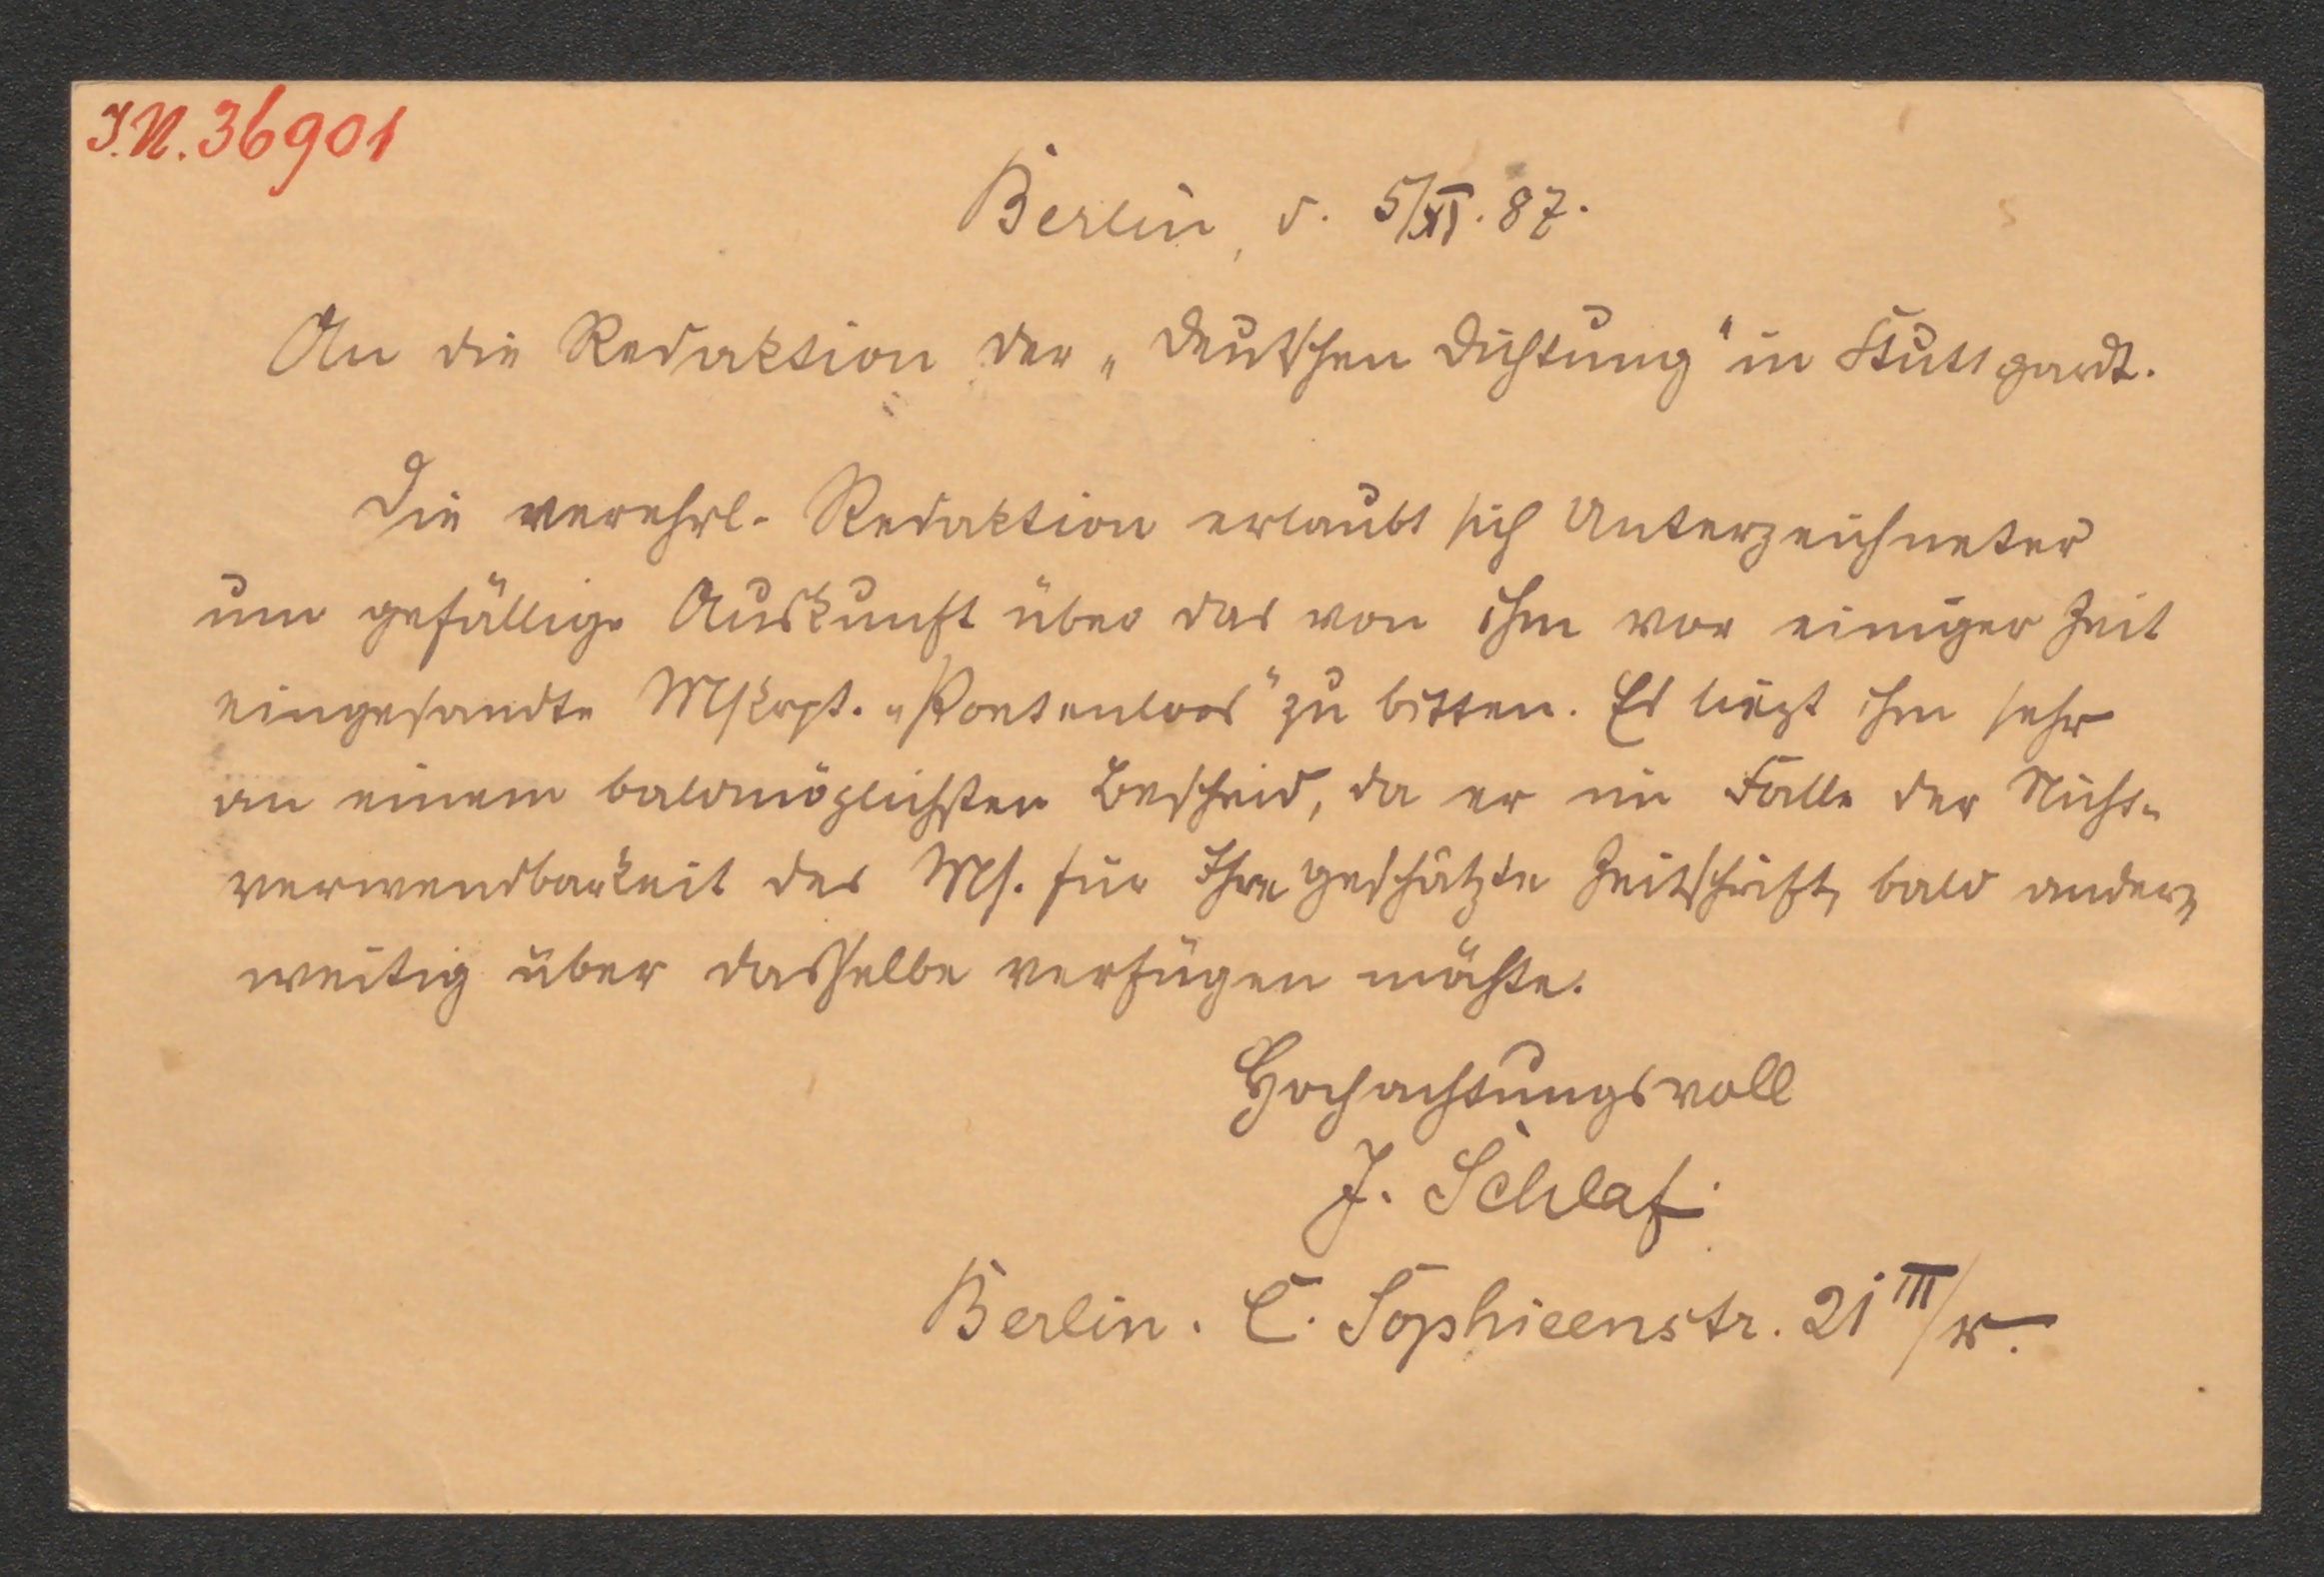 I.N. 36901
Berlin, d. 5/XI. 87.
An die Redaktion der „Deutschen Dichtung“ in Stuttgardt.
Die verehrl. Redaktion erlaubt sich Unterzeichneter
um gefällige Auskunft über das von ihm vor einiger Zeit
eingesandte Mskrpt. „Poetenloos“ zu bitten. Es liegt ihm sehr
an einem baldmöglichsten Bescheid, da er im Falle der Nicht-
verwendbarkeit des Ms. für Ihre geschätzte Zeitschrift, bald ander-
weitig über dasselbe verfügen möchte.
Hochachtungsvoll
J. Schlaf.
Berlin. C. Sophieenstr. 21 III/r.